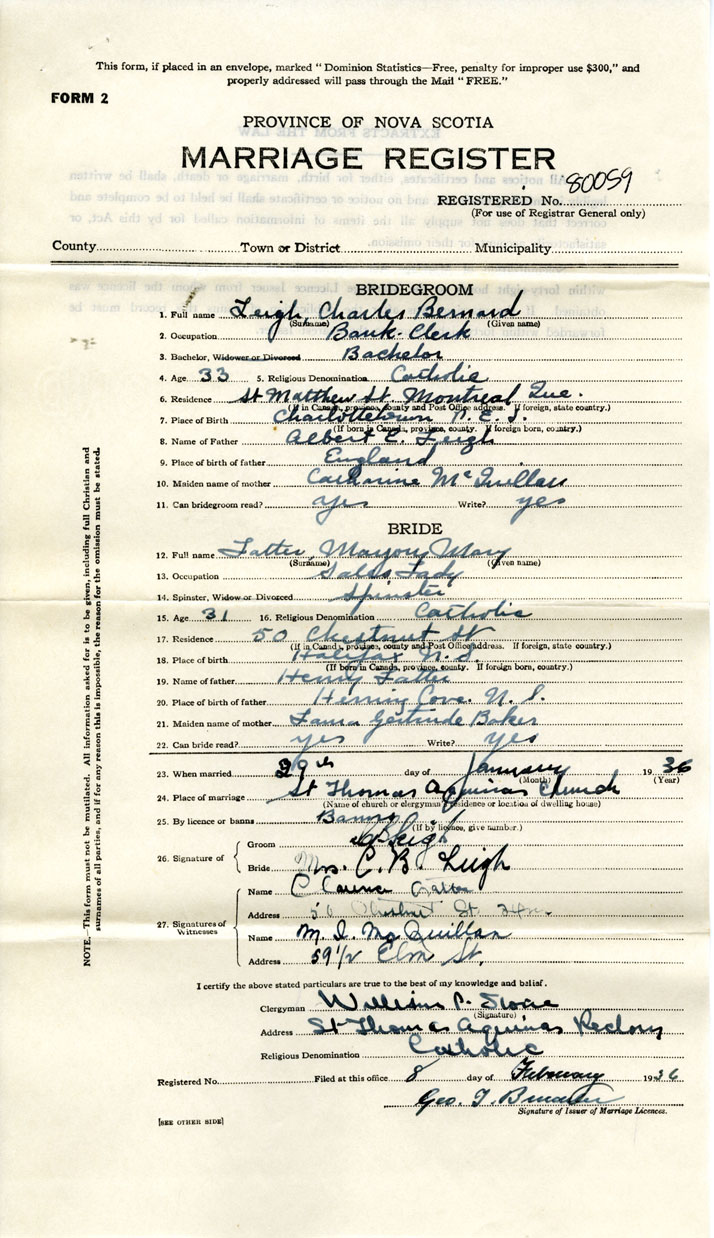 This form, if placed in an envelope, marked " Dominion Statistics—Free, penalty for improper use $300," and
properly addressed will pass through the Mail " FREE."
FORM 2
PROVINCE OF NOVA SCOTIA
MARRIAGE REGISTER
REGISTERED No. 80059
(For use of Registrar General only)
County Town or District Municipality
BRIDEGROOM
1. Full name Leigh, Charles Bernard
(Surname) (Given name)
2. Occupation Bank-Clerk
3. Bachelor, Widower or Divorced Bachelor
4. Age 33 5. Religious Denomination Catholic
6. Residence St Matthew St. Montreal Que.
(If in Canada, province, county and Post Office address. If foreign, state country.)
7. Place of Birth Charlottetown P. E. I.
(If born in Canada, province, county. If foreign born, country.)
8. Name of Father Albert E. Leigh
9. Place of birth of father England
10. Maiden name of mother Catharine McQuillan
11. Can bridegroom read? yes Write? yes
BRIDE
12. Full name Mary
(Surname) (Given name)
13. Occupation Sales Lady
14. Spinster, Widow or Divorced Spinster
15. Age 31 16. Religious Denomination Catholic
17. Residence 50 Chestnut St
(If in Canada, province, county and Post Office address. If foreign, state country.)
18. Place of birth Halifax N. S.
(If born in Canada, province, county. If foreign born, country.)
19. Name of father Henry
20. Place of birth of father Herring Cove N. S.
21. Maiden name of mother Gertrude Baker
22. Can bride read? yes Write? yes
23. When married 29th day of January 19 36
(Month) (Year)
24. Place of marriage St Thomas Aquinas Church
(Name of church or clergyman's residence or location of dwelling house)
25. By licence or banns Banns
(If by licence, give number.)
26. Signature of
Groom Leigh
Bride Mrs. C. B. Leigh
27. Signatures of Witnesses
Name
Address 50 Chestnut St.
Name M. I. McQuillan
Address 59 1/2 Elm St.
I certify the above stated particulars are true to the best of my knowledge and belief.
Clergyman William P.
(Signature)
Address St Thomas Aquinas Rectory
Religious Denomination Catholic
Registered No. Filed at this office 8 day of February 1936
Geo.
Signature of Issuer of Marriage Licences.
[SEE OTHER SIDE]
NOTE.—This form must not be mutilated. All information asked for is to be given, including full Christian and
surnames of all parties, and if for any reason this is impossible, the reason for the omission must be stated.